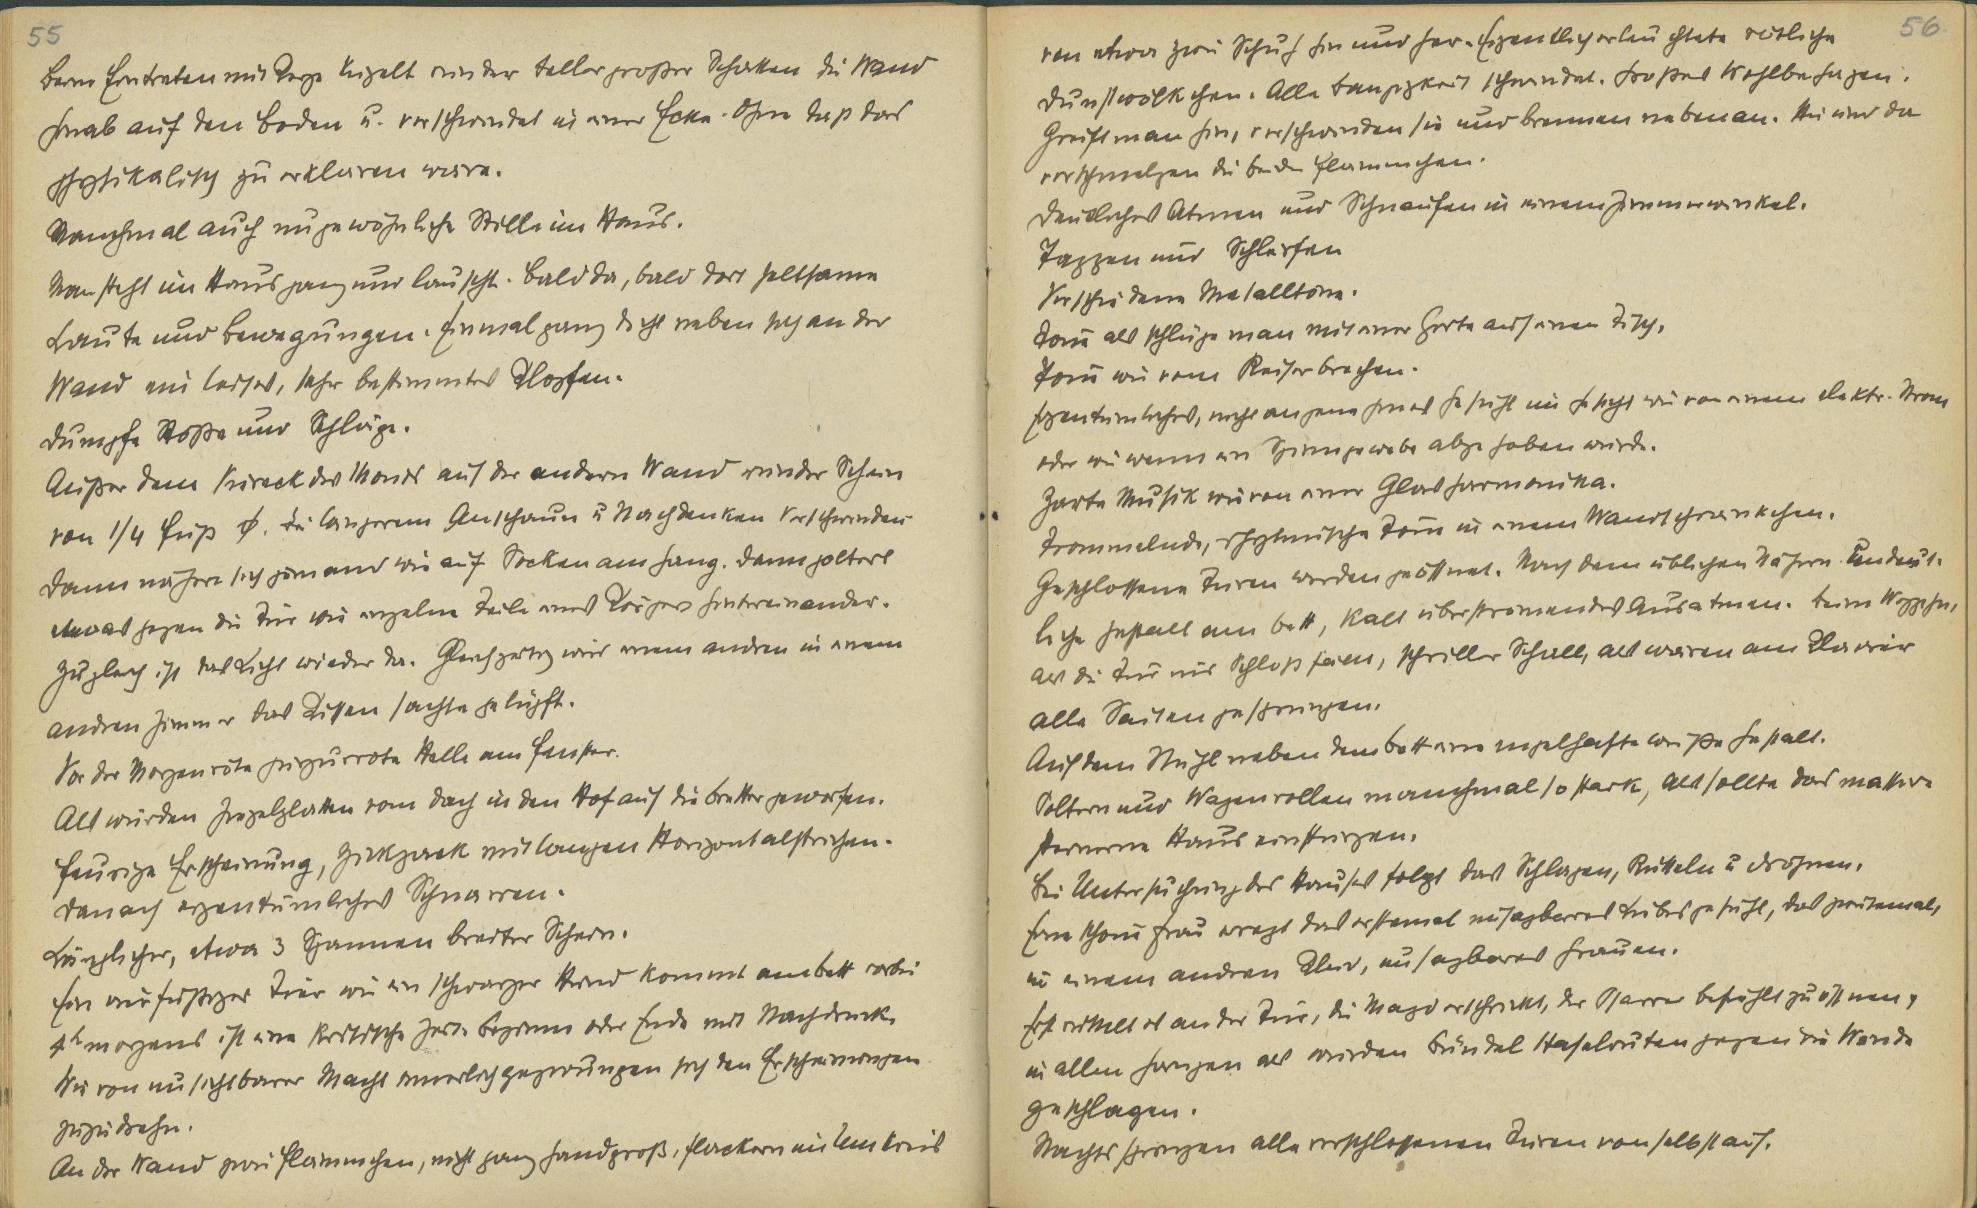 55
Beim Eintreten mit Kerze kugelt runder tellergroßer Schatten die Wand
hinab auf den Boden u. verschwindet in einer Ecke. Ohne daß das
physikalisch zu erklären wäre.
Manchmal auch ungewöhnliche Stille im Haus.
Man steht im Hausgang und lauscht. Bald da, bald dort seltsame
Laute und Bewegungen. Einmal ganz dicht neben sich an der
Wand ein leises, sehr bestimmtes Klopfen.
Dumpfe Stöße und Schläge.
Außer dem Viereck des Monds auf der andern Wand runder Schein
von 1/4 Fuß ϕ. Bei längerem Anschaun u Nachdenken Verschwinden
Dann nähere sich jemand wie auf Socken am Gang. Dann poltert
etwas gegen die Tür wie einzelne Teile eines Körpers hintereinander.
Zugleich ist das Licht wieder da. Gleichzeitig wird einem andren in einem
andren Zimmer das Kissen sachte gelüpft.
Vor der Morgenröte purpurrote Helle am Fenster.
Als würden Ziegelplatten vom Dach in den Hof auf die Bretter geworfen.
Feurige Erscheinung, Zickzack mit langen Horizontalstrichen.
Danach eigentümliches Schnarren.
Länglicher, etwa 3 Spannen breiter Schein.
Ein vierfüßiges Tier wie ein schwarzer Hund kommt am Bett vorbei
4h morgens ist eine kritische Zeit. Beginn oder Ende mit Nachdruck.
Wie von unsichtbarer Macht innerlich gezwungen sich den Erscheinungen
zuzudrehn.
An der Wand zwei Flämmchen, nicht ganz handgroß, flackern im Umkreis
56
von etwa zwei Schuh hin und her. Eigentlich erleuchtete rötliche
Dunstwölkchen. Alle Bangigkeit schwindet. Großes Wohlbehagen.
Greift man hin, verschwinden sie und brennen nebenan. Hie und da
verschmelzen die beiden Flämmchen.
Deutliches Atmen und Schnaufen in einem Zimmerwinkel.
Tappen und Schlürfen
Verschiedene Metalltöne.
Ton als schlüge man mit einer Gerte auf einen Tisch.
Ton wie vom Reiserbrechen.
Eigentümliches, nicht angenehmes Gefühl im Gesicht wie von einem elektr. Strom
oder wie wenn ein Spinngewebe abgehoben würde.
Zarte Musik wie von einer Glasharmonika.
Trommelnde, rhytmische Töne in einem Wandschränkchen.
Geschlossene Türen werden geöffnet. Nach dem üblichen Nähern undeut-
liche Gestalt am Bett, kalt überströmendes Ausatmen. Beim Weggehn,
als die Tür ins Schloß fällt, schriller Schall, als wären am Klavier
alle Saiten gesprungen.
Auf dem Stuhl neben dem Bett eine engelhafte weiße Gestalt.
Poltern und Wagenrollen manchmal so stark, als sollte das massive
steinerne Haus einstürzen.
Bei Untersuchung des Hauses folgt das Schlagen, Rütteln u Dröhnen.
Eine schöne Frau erregt das erstemal unsagbares Liebesgefühl, das zweitemal,
in einem andren Kleid, unsagbares Grauen.
Erst rüttelt es an der Tür, die Magd erschrickt, der Pfarrer befiehlt zu öffnen,
in allen Gängen als würden Bündel Haselruten gegen die Wände
geschlagen.
Nachts springen alle verschlossenen Türen von selbst auf.